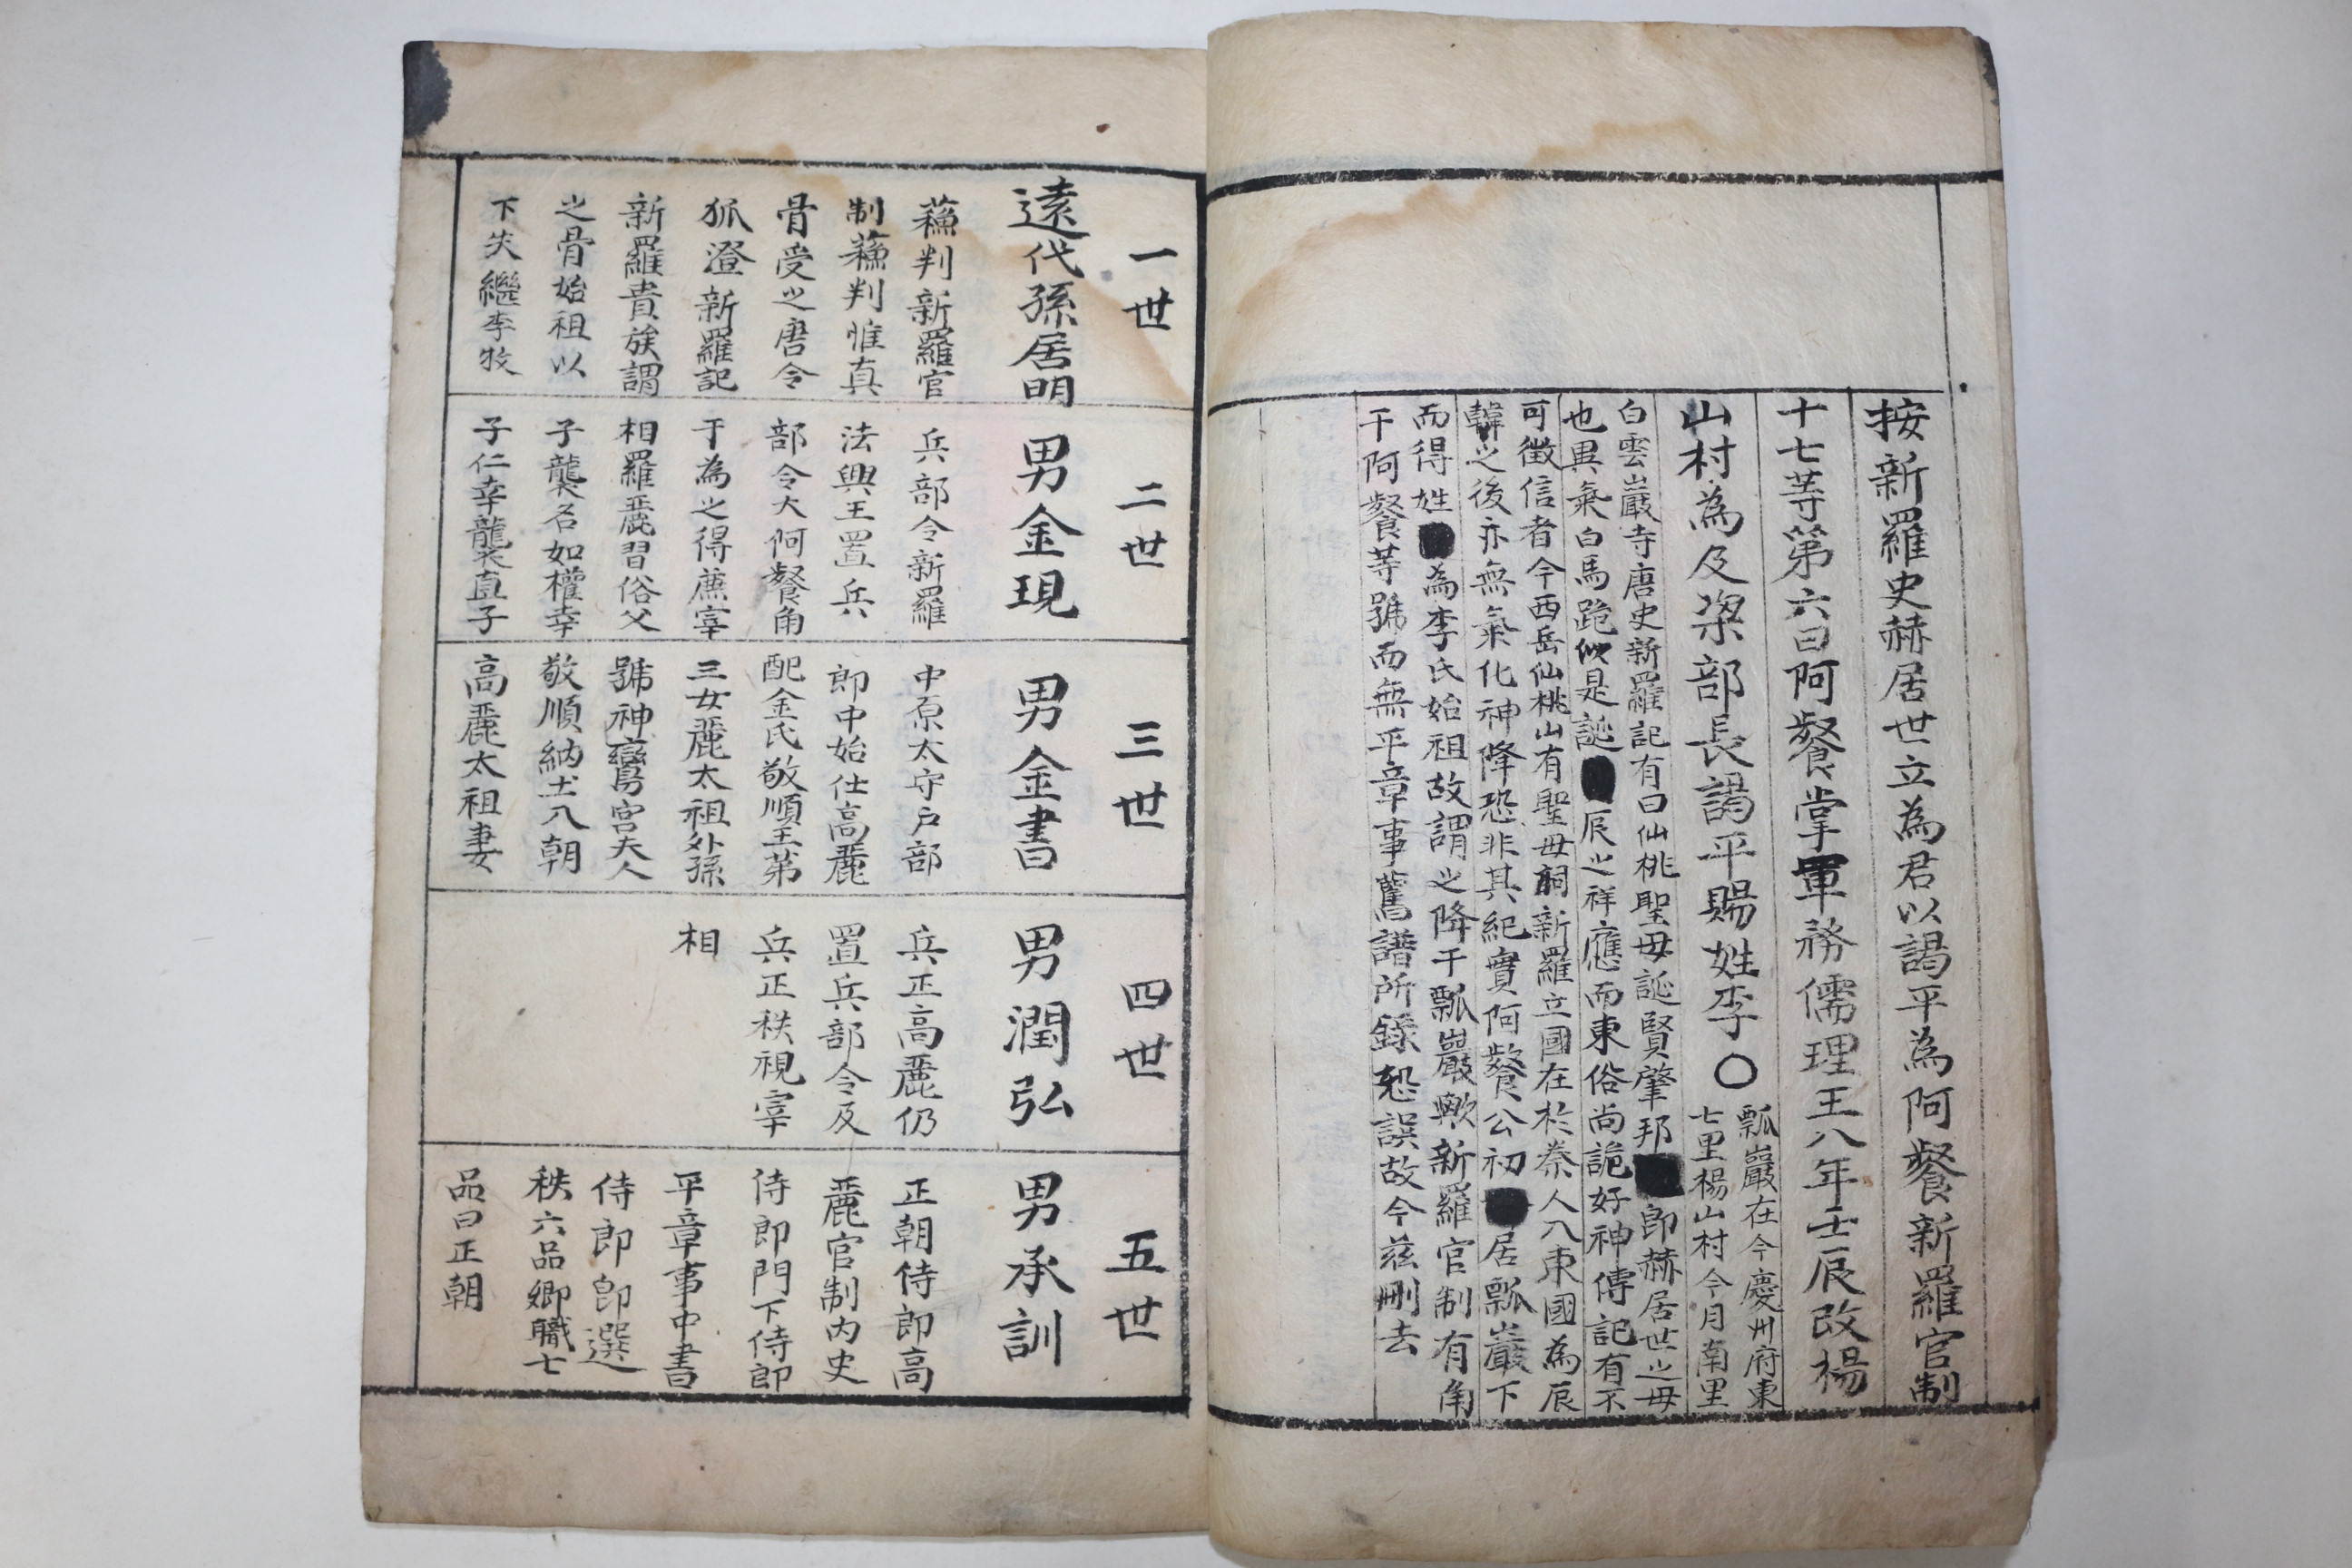 按新羅史赫居世立為君以謁平為阿餐新羅官制
十七等第六曰阿餐掌軍務儒理王八年壬辰改楊
山村為及梁部長謁平賜姓李〇
瓢巖在今慶州府東
七里楊山村今月南里
白雲巖寺唐史新羅記有曰仙桃聖母誕賢肇邦即赫居世之母
也異氣白馬跪似是誕辰之祥應而東俗尚詭好神傳記有不
可徵信者今西岳仙桃山有聖母祠新羅立國在於秦人入東國為辰
韓之後亦無氣化神降恐非其紀實阿餐公初居瓢巖下
而得姓為李氏始祖故謂之降于瓢巖歟新羅官制有角
干阿餐等號而無平章事舊譜所錄恐誤故今玆刪去
一世
遠代孫居明
蘓判新羅官
制蘓判惟真
骨受之唐令
狐澄新羅記
新羅貴族謂
之骨始祖以
下失繼李牧
二世
男金現
兵部令新羅
法興王置兵
部令大阿餐角
于為之得庶宰
相羅麗習俗父
子襲名如權幸
子仁幸襲直子
三世
男金書
中原太守戶部
郎中始仕高麗
配金氏敬順王第
三女麗太祖外孫
號神鸞宮夫人
敬順納土入朝
高麗太祖妻
四世
男潤弘
兵正高麗仍
置兵部令及
兵正秩視宰
相
五世
男承訓
正朝侍郎高
麗官制內史
侍郎門下侍郎
平章事中書
侍郎郎選
秩六品鄉職士
品曰正朝